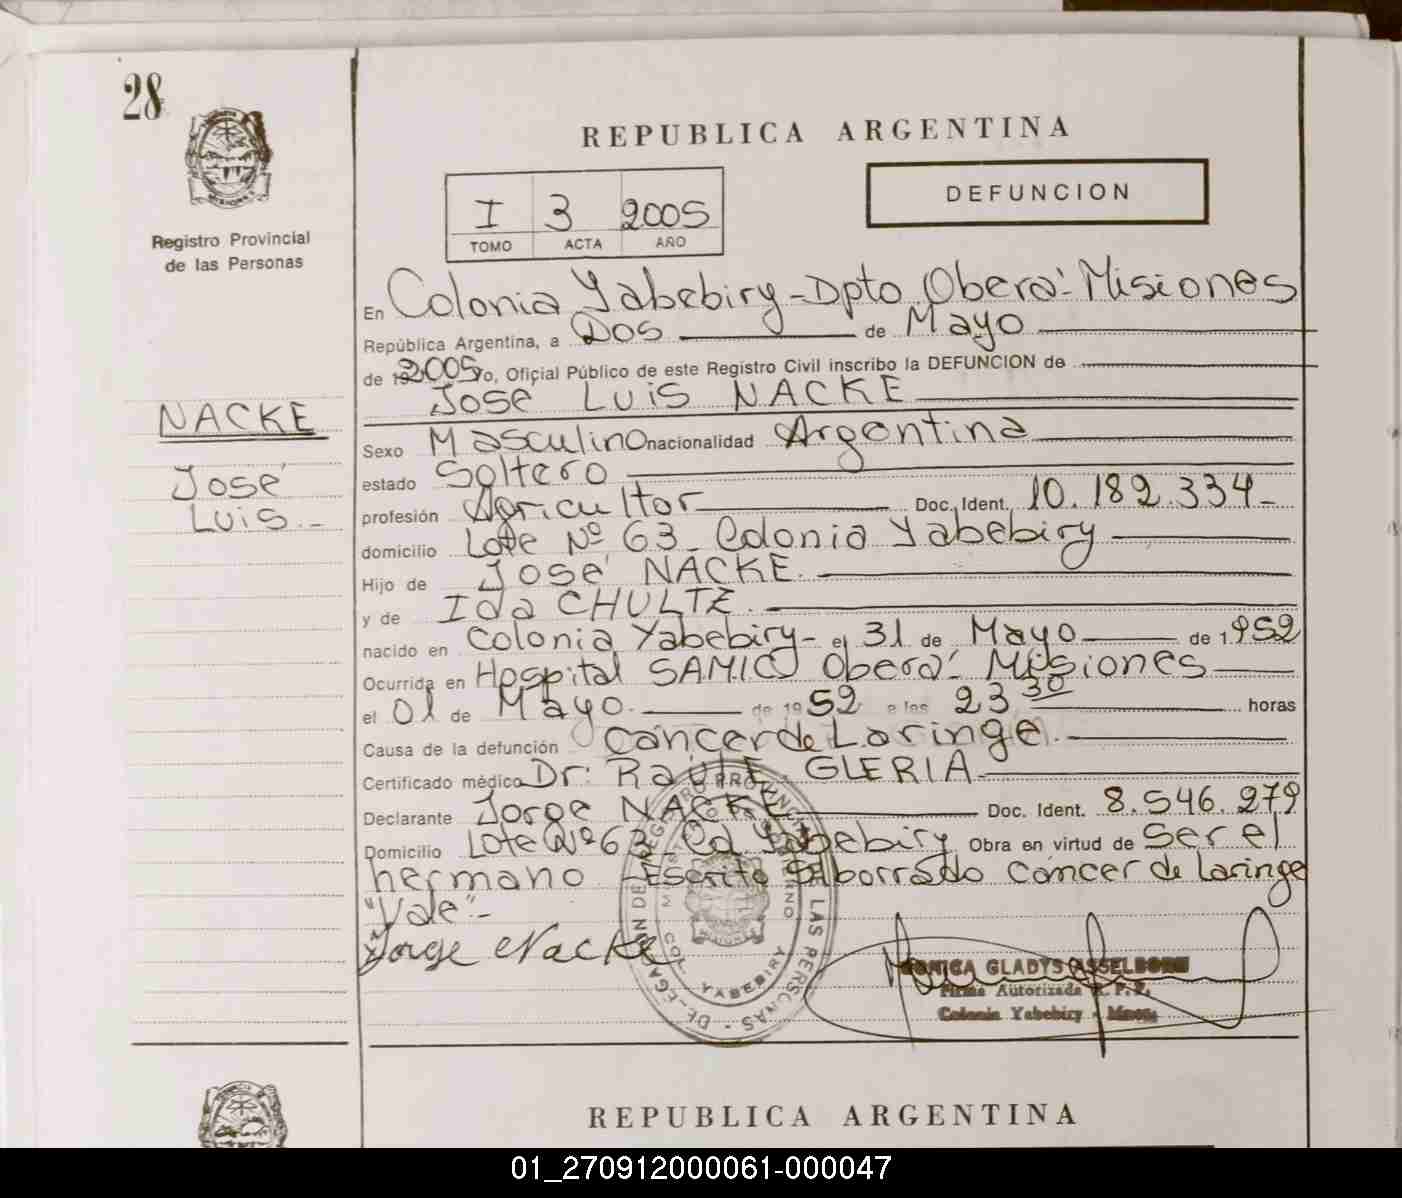 28
Registro Provincial
de las Personas
NACKE
José
Luis.-
REPUBLICA ARGENTINA
I 3 2005
TOMO ACTA AÑO
DEFUNCION
En Colonia Yabebiry-Dpto Oberá-Misiones
República Argentina, a Dos de Mayo
de 2005 yo, Oficial Público de este Registro Civil inscribo la DEFUNCION de
Jose Luis NACKE
Sexo Masculino nacionalidad Argentina
estado Soltero
profesión Agricultor Doc. Ident. 10.182.334-
domicilio Lote Nº 63 - Colonia Yabebiry
Hijo de José NACKE.
y de Ida CHULTZ.
nacido en Colonia Yabebiry- el 31 de Mayo de 1.952
Ocurrida en Hospital SAMIC Oberá- Misiones
el 01 de Mayo. de 1952 a las 23 30 horas
Causa de la defunción cáncer de Laringe.
Certificado médico Dr: Raúl E. GLERIA
Declarante Jorge NACKE Doc. Ident. 8.546.279
Domicilio Lote Nº 63 - Col. Yabebiry Obra en virtud de ser el
hermano - Escrito S/borrado cáncer de Laringe
"Vale".-
Jorge Nacke
DELEGACION DEL REGISTRO PROVINCIAL DE LAS PERSONAS
MINISTERIO DE GOBIERNO
MISIONES
COL. YABEBIRY
MONICA GLADYS
Firma Autorizada R. P. P.
Colonia Yabebiry - Mnes.
REPUBLICA ARGENTINA
01_270912000061-000047